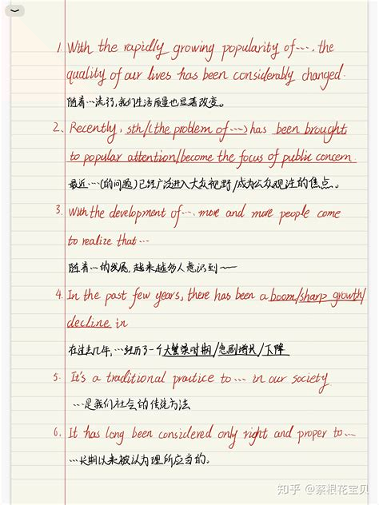 1. With the rapidly growing popularity of ..., the
quality of our lives has been considerably changed.
随着...流行,我们生活质量也显著改变。
2. Recently, sth/(the problem of ...) has been brought
to popular attention/become the focus of public concern
最近...(的问题)已经广泛进入大众视野/成为公众关注的焦点。
3. With the development of ... more and more people come
to realize that ...
随着...的发展,越来越多人意识到——
4. In the past few years, there has been a boom/sharp growth/
decline in
在过去几年,...经历了一个大繁荣时期/急剧增长/下降
5. It's a traditional practice to ... in our society
...是我们社会的传统方法
6. It has long been considered only right and proper to ...
...长期以来被认为理所应当的。
知乎 @蔡根花宝贝